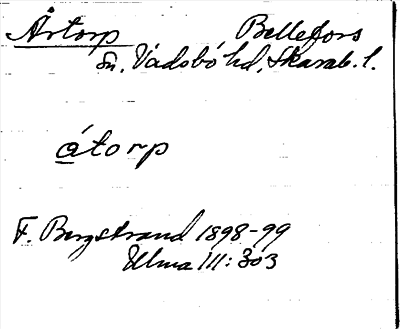 Årtorp Bellefors
sn, Vadsbo hd, Skarab. l.
átorp
F. Bergstrand 1898-99
Ulma III: 303